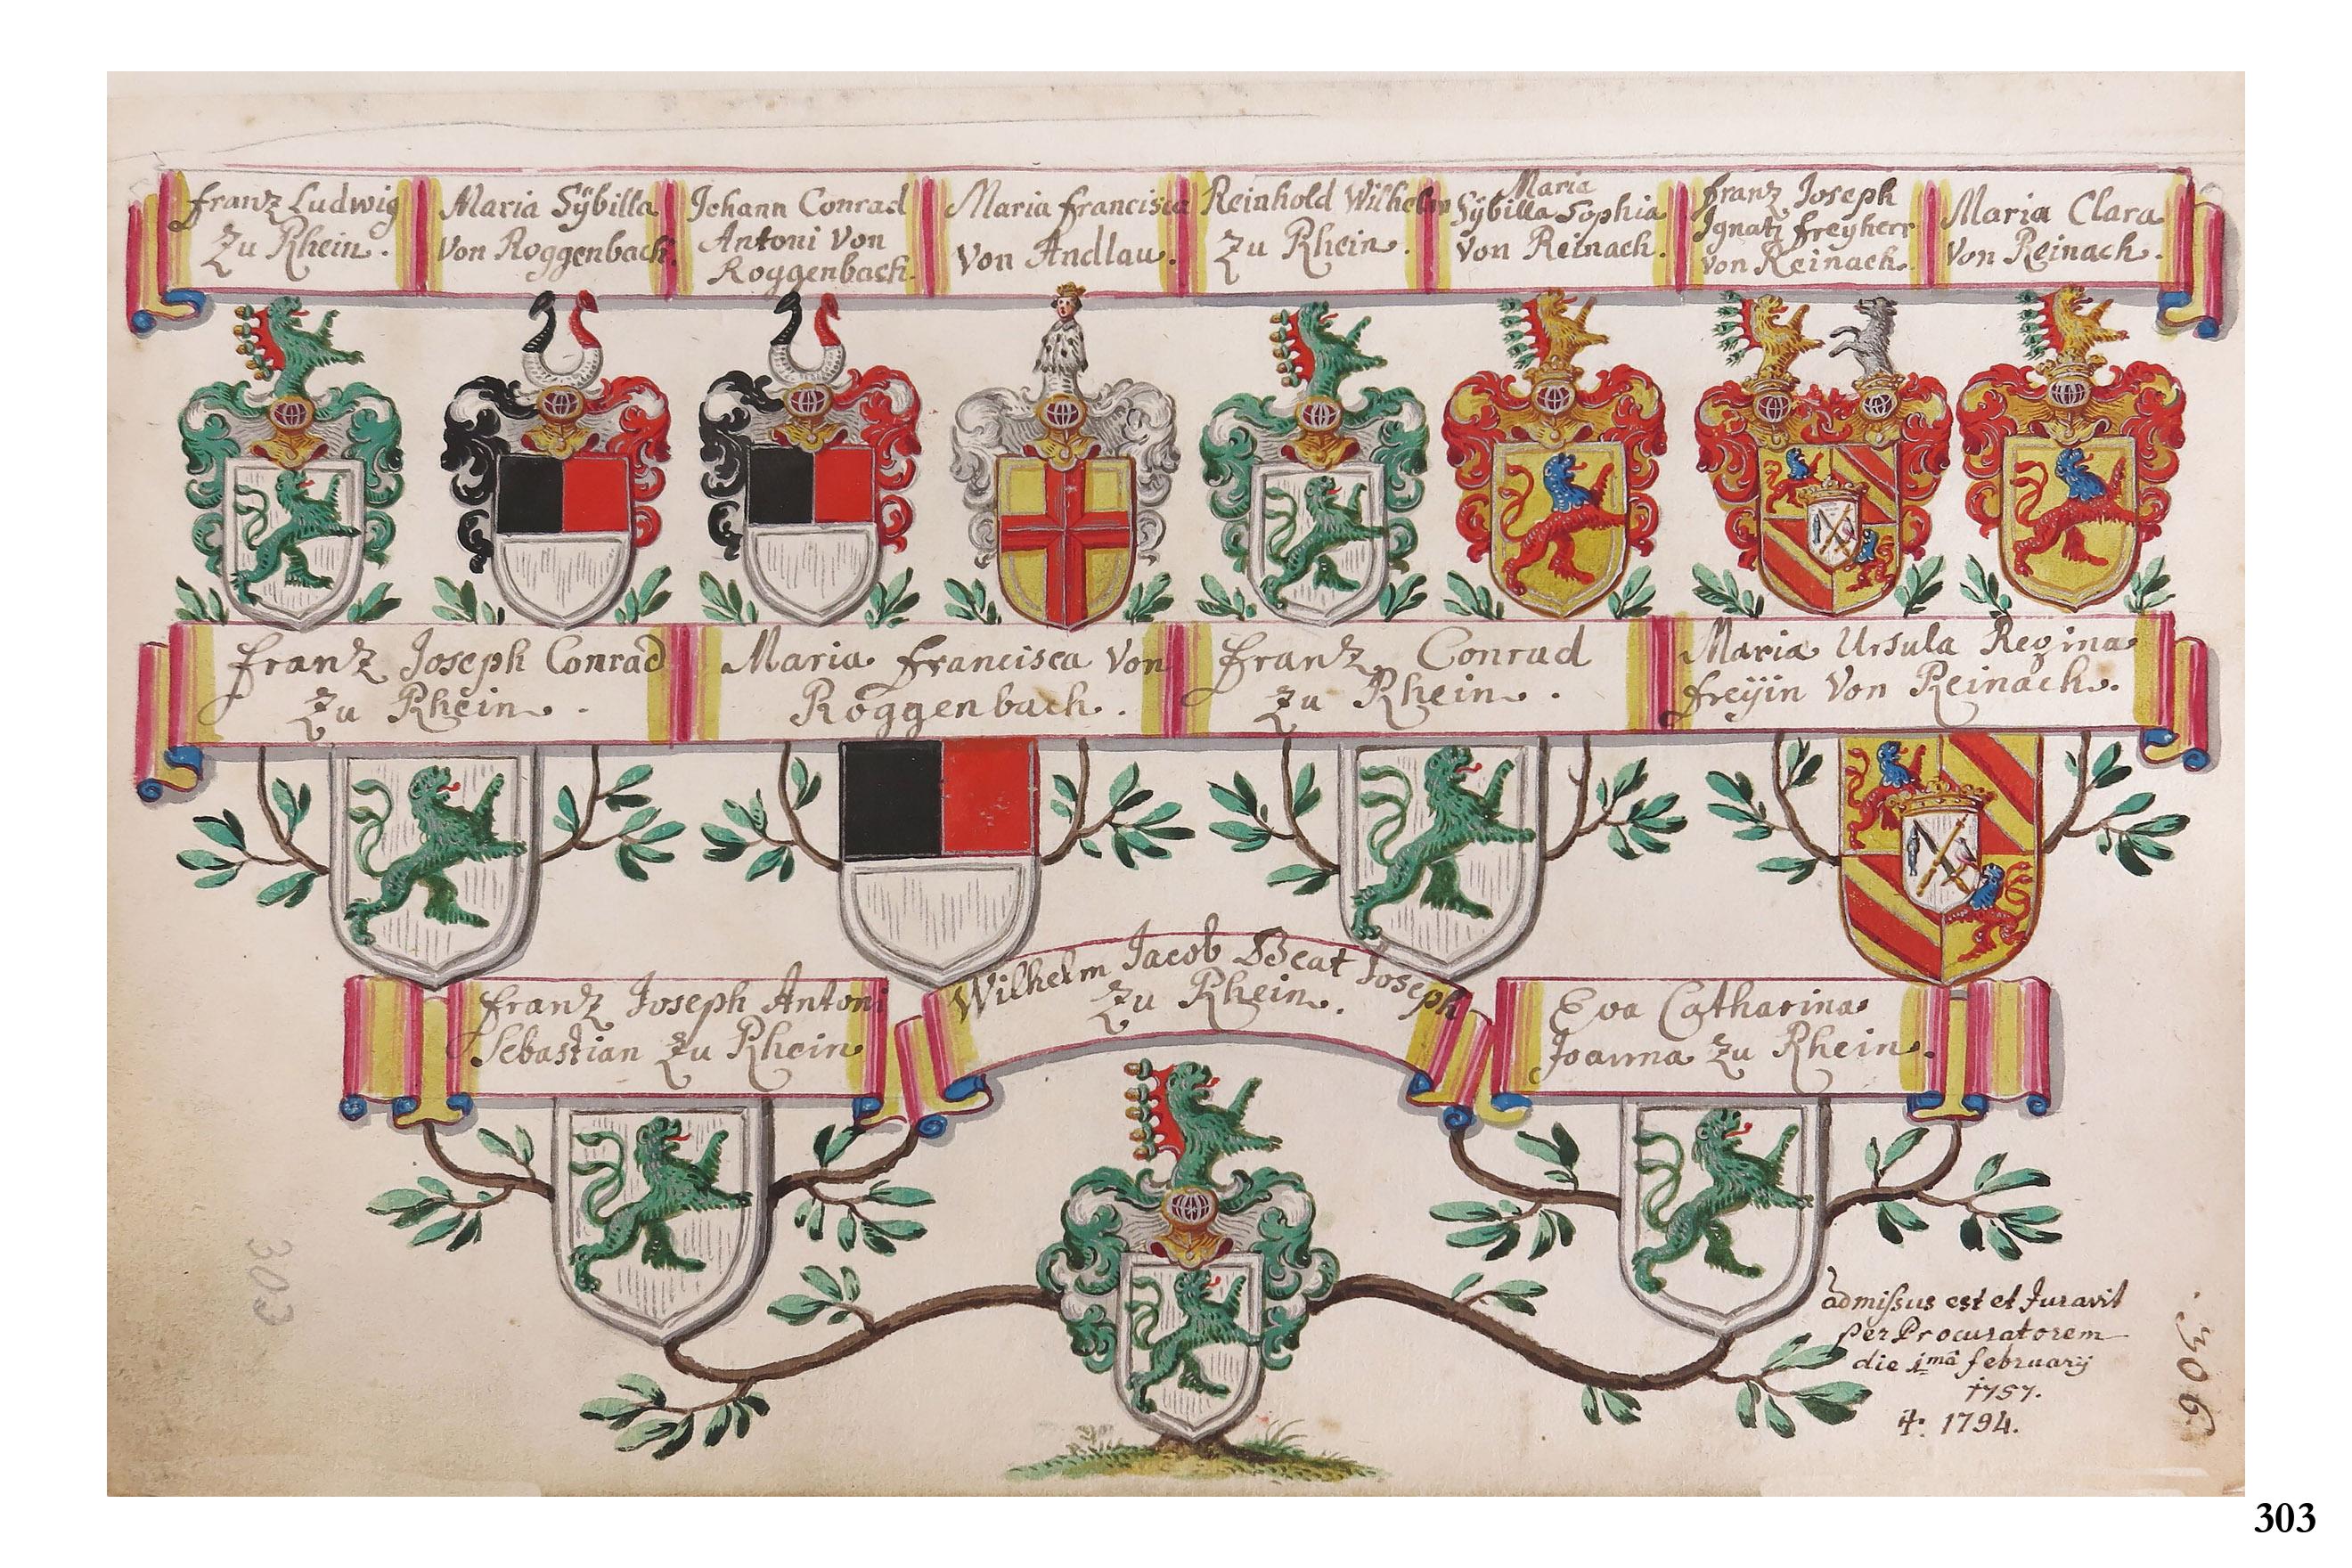 Franz Ludwig
Zu Rhein.
Maria Sÿbilla
Von Roggenbach.
Johann Conrad
Antoni Von
Roggenbach.
Maria Francisca
Von Andlau.
Reinhold Wilhelm
Zu Rhein.
Maria
Sÿbilla Sophia
Von Reinach.
Franz Joseph
Ignatz Freyherr
von Reinach.
Maria Clara
Von Reinach.
Franz Joseph Conrad
Zu Rhein.
Maria Francisca Von
Roggenbach.
Franz Conrad
Zu Rhein.
Maria Ursula Regina
Freÿin Von Reinach.
Franz Joseph Antoni
Sebastian Zu Rhein
Wilhelm Jacob Beat Joseph
Zu Rhein.
Eva Catharina
Joanna Zu Rhein.
admissus est et Juravit
per Procuratorem
die 1mâ februarij
1757.
†. 1794.
303
306
303